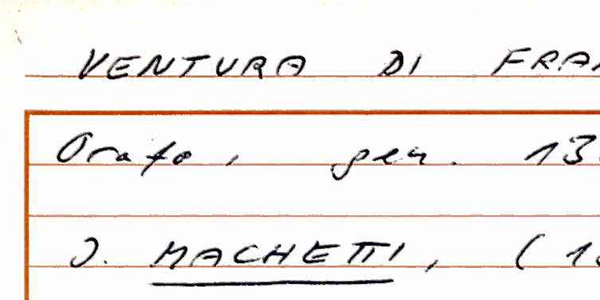 VENTURA DI FRA
Orafo, gen. 13
J. MACHETTI, (1